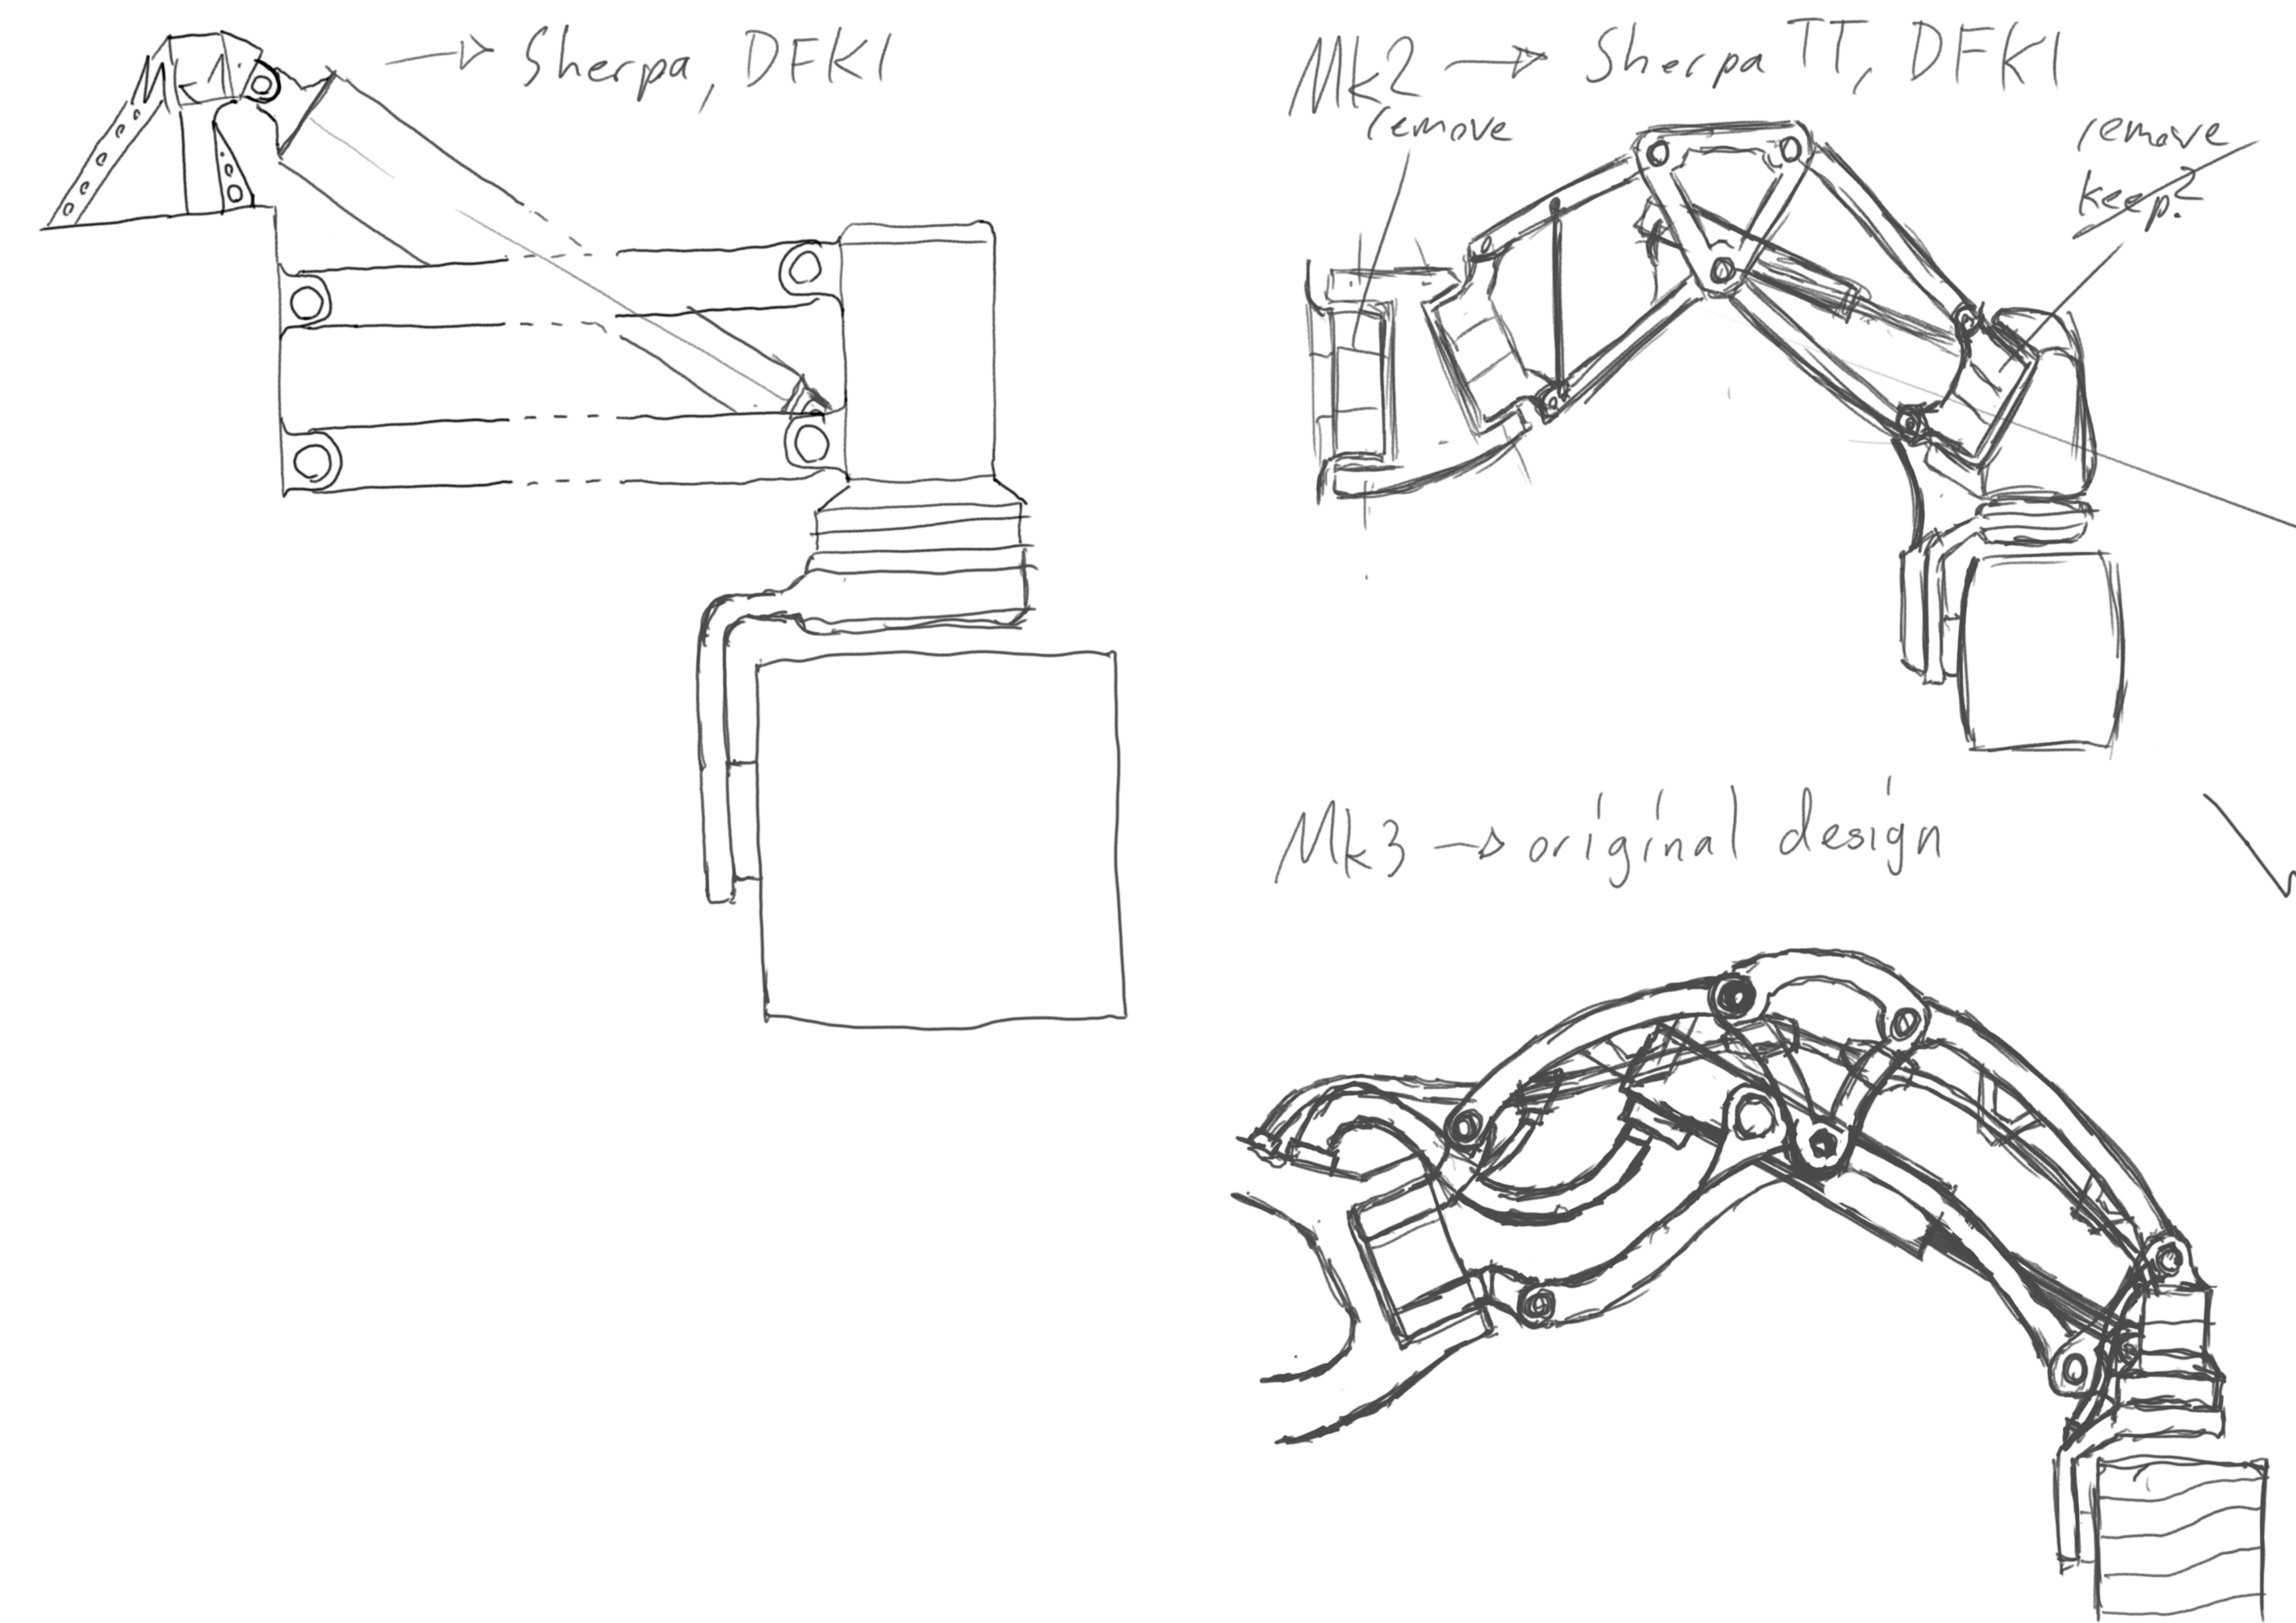 → Sherpa, DFKI
Mk2 → Sherpa TT, DFKI
remove
remove
keep?
Mk3 → original design